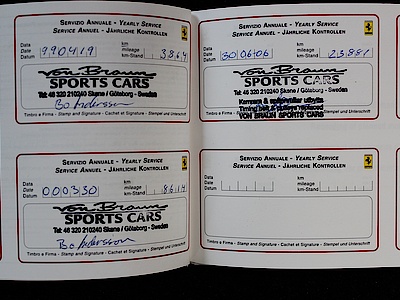 SERVIZIO ANNUALE - YEARLY SERVICE
SERVICE ANNUEL - JÄHRLICHE KONTROLLEN
Data
Date
Datum
990419
km
mileage
km-Stand
3864
von Braun
SPORTS CARS
Tel: 46 320 210240 Skene / Göteborg - Sweden
Bo Andersson
Timbro e Firma - Stamp and Signature - Cachet et Signature - Stempel und Unterschrift
SERVIZIO ANNUALE - YEARLY SERVICE
SERVICE ANNUEL - JÄHRLICHE KONTROLLEN
Data
Date
Datum
000330
km
mileage
km-Stand
8614
von Braun
SPORTS CARS
Tel: 46 320 210240 Skene / Göteborg - Sweden
Bo Andersson
Timbro e Firma - Stamp and Signature - Cachet et Signature - Stempel und Unterschrift
SERVIZIO ANNUALE - YEARLY SERVICE
SERVICE ANNUEL - JÄHRLICHE KONTROLLEN
Data
Date
Datum
30 06 06
km
mileage
km-Stand
23.881
von Braun
SPORTS CARS
Tel: 46 320 210240 Skene / Göteborg - Sweden
Timing belt & rollers replaced
VON BRAUN SPORTS CARS
Timbro e Firma - Stamp and Signature - Cachet et Signature - Stempel und Unterschrift
SERVIZIO ANNUALE - YEARLY SERVICE
SERVICE ANNUEL - JÄHRLICHE KONTROLLEN
Data
Date
Datum
km
mileage
km-Stand
Timbro e Firma - Stamp and Signature - Cachet et Signature - Stempel und Unterschrift